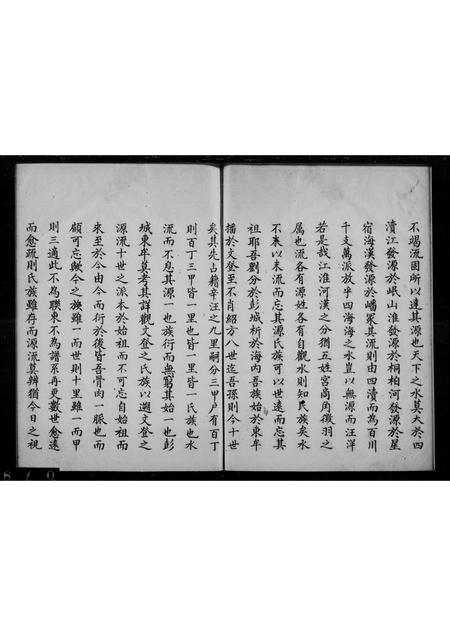 不竭流固所以達其源也天下之水莫大於四
瀆江發源於岷山淮發源於桐柏河發源於星
宿海漢發源於嶓冢其流則由四瀆而為百川
千支萬派放乎四海海之水豈以無源而汪洋
若是哉江淮河漢之分猶五姓宮商角徵羽之
屬也流各有源姓各有自觀水則知民族矣水
不以末流而忘其源氏族可以世遠而忘其
祖耶吾劉分於彭城析於海內吾族始於東牟
播於文登至不自紹方八世迄吾孫則今十世
矣其先占籍辛汪之九里嗣分三甲戶有百丁
則百丁三甲皆一里也皆一里皆一氏族也水
流而不息其源一也族衍而無窮其始一也彭
城東牟莫考其詳觀文登之氏族以遡文登之
源流十世之派本於始祖而不可忘自始祖而
來至於今由今而衍於後皆吾骨肉一脈也而
顧可忘歟今之族雖一而世則十里雖一而甲
則三適此不為聯東不為譜系再更數世愈遠
而愈疏則氏族雖存而源流莫辨猶今日之視